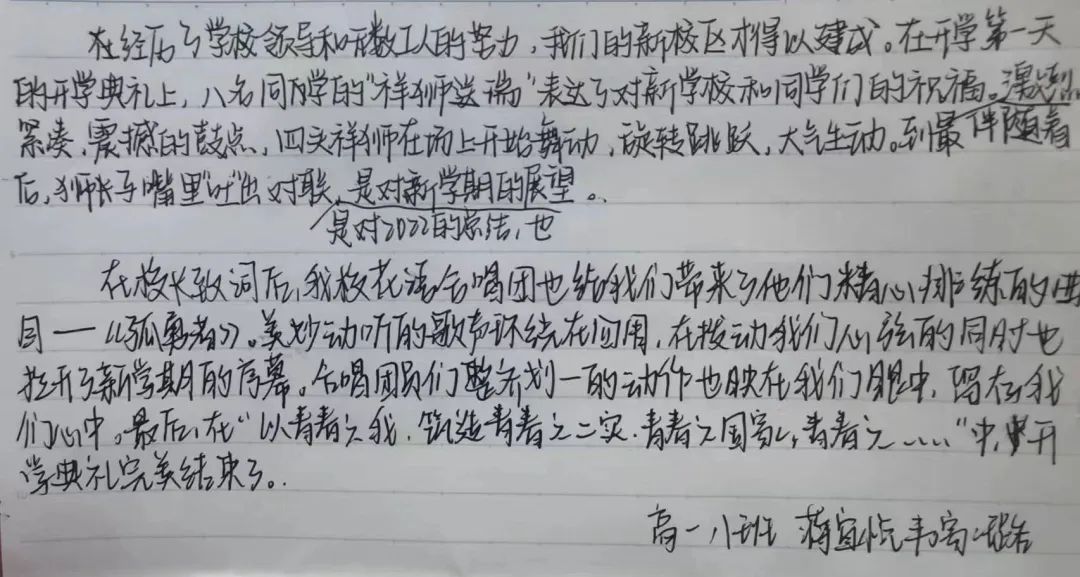 在经历了学校领导和无数工人的努力，我们的新校区才得以建成。在开学第一天
的开学典礼上，八名同学的“祥狮送瑞”表达了对新学校和同学们的祝福。伴随着激烈
紧凑、震撼的鼓点，四头祥狮在场上开始舞动，旋转跳跃，大气生动。到最
后，狮子嘴里“吐”出对联，是对2022的总结，也是对新学期的展望。
在校长致词后，我校花语合唱团也给我们带来了他们精心排练的曲
目—《孤勇者》。美妙动听的歌声环绕在四周，在拨动我们心弦的同时也
拉开了新学期的序幕。合唱团员们整齐划一的动作也映在我们眼中，留在我
们心中。最后，在“以青春之我，筑造青春之，青春之国家，青春之……”中，开
学典礼完美结束了。
高一八班 蒋宜